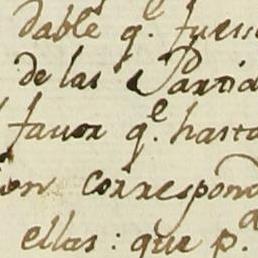 dable q.e fuess
de las Partid
favor q.e hasta
ion correspond
ellas: que p.a